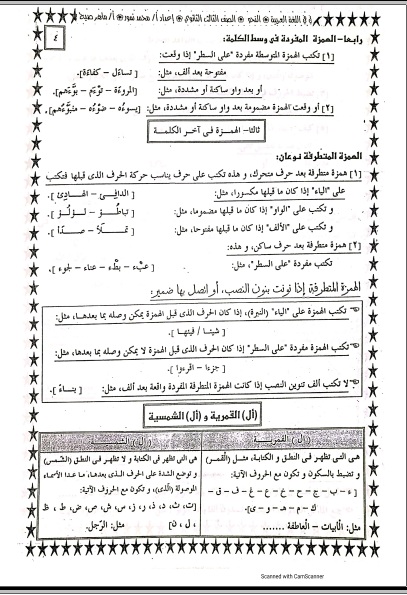 اللغة العربية ❋ النحو ❋ الصف الثالث الثانوي ❋ إعداد أ/ محمد
٤
رابعا - الهمزة المفردة في وسط الكلمة:
[١] تكتب الهمزة المتوسطة مفردة "على السطر" إذا وقعت:
مفتوحة بعد ألف، مثل: [ تساءَل - كفاءَة].
أو بعد واو ساكنة أو مشددة، مثل: [المروءَة - توءَم - بوَّءَهم].
[٢] أو وقعت الهمزة مضمومة بعد واو ساكنة أو مشددة، مثل: [يسوءُه - ضوءُه -
ثالثا - الهمزة في آخر الكلمة
الهمزة المتطرفة نوعان:
[١] همزة متطرفة بعد حرف متحرك، و هذه تكتب على حرف يناسب حركة الحرف الذى قبلها فتكتب
على "الياء" إذا كان ما قبلها مكسورا، مثل: [ الدافِئ - الهـادِئ ].
و تكتب على "الواو" إذا كان ما قبلها مضموما، مثل: [ تباطُؤ - لـؤلُـؤ ].
و تكتب على "الألف" إذا كان ما قبلها مفتوحا، مثل:
[٢] همزة متطرفة بعد حرف ساكن، و هذه:
تكتب مفردة "على السطر"، مثل: [ عبْء - بطْء - عناء - لجوء ].
الهمزة المتطرفة إذا نونت بنون النصب، أو اتصل بها ضمير:
تكتب الهمزة على "الياء" (النبرة)، إذا كان الحرف الذى قبل الهمزة يمكن وصله بما بعدها، مثل:
[ شيئا / فيئها ].
تكتب الهمزة مفردة "على السطر" إذا كان الحرف الذى قبل الهمزة لا يمكن وصله بما بعدها، مثل:
[ جزءا - اقرءوا ].
لا تكتب ألف تنوين النصب إذا كانت الهمزة المتطرفة المفردة واقعة بعد ألف، مثل: [ بناءً ].
(أل) القمرية و (أل) الشمسية
( أل ) القمرية
هى التى تظهر فى النطق و الكتابة، مثـل (القَمر)
و تضبط بالسكون و تكون مع الحروف الآتية:
[ ء - ب - ج - ح - خ - ع - غ - ف - ق -
ك - م - هـ - و - ى].
مثل: الْأبيات - الْعاطفة .......
( أل ) الشمسية
هى التى تظهر فى الكتابة و لا تظهر فـى النطـق (الشَّمس)
و توضع الشدة على الحرف الذى بعدها، ما عدا الأسماء
الموصولة (الَّذى)، و تكون مع الحروف الآتية:
[ت، ث، د، ذ، ر، ز، س، ش، ص، ض، ط، ظ
، ل، ن] مثل: الرَّجل.
Scanned with CamScanner